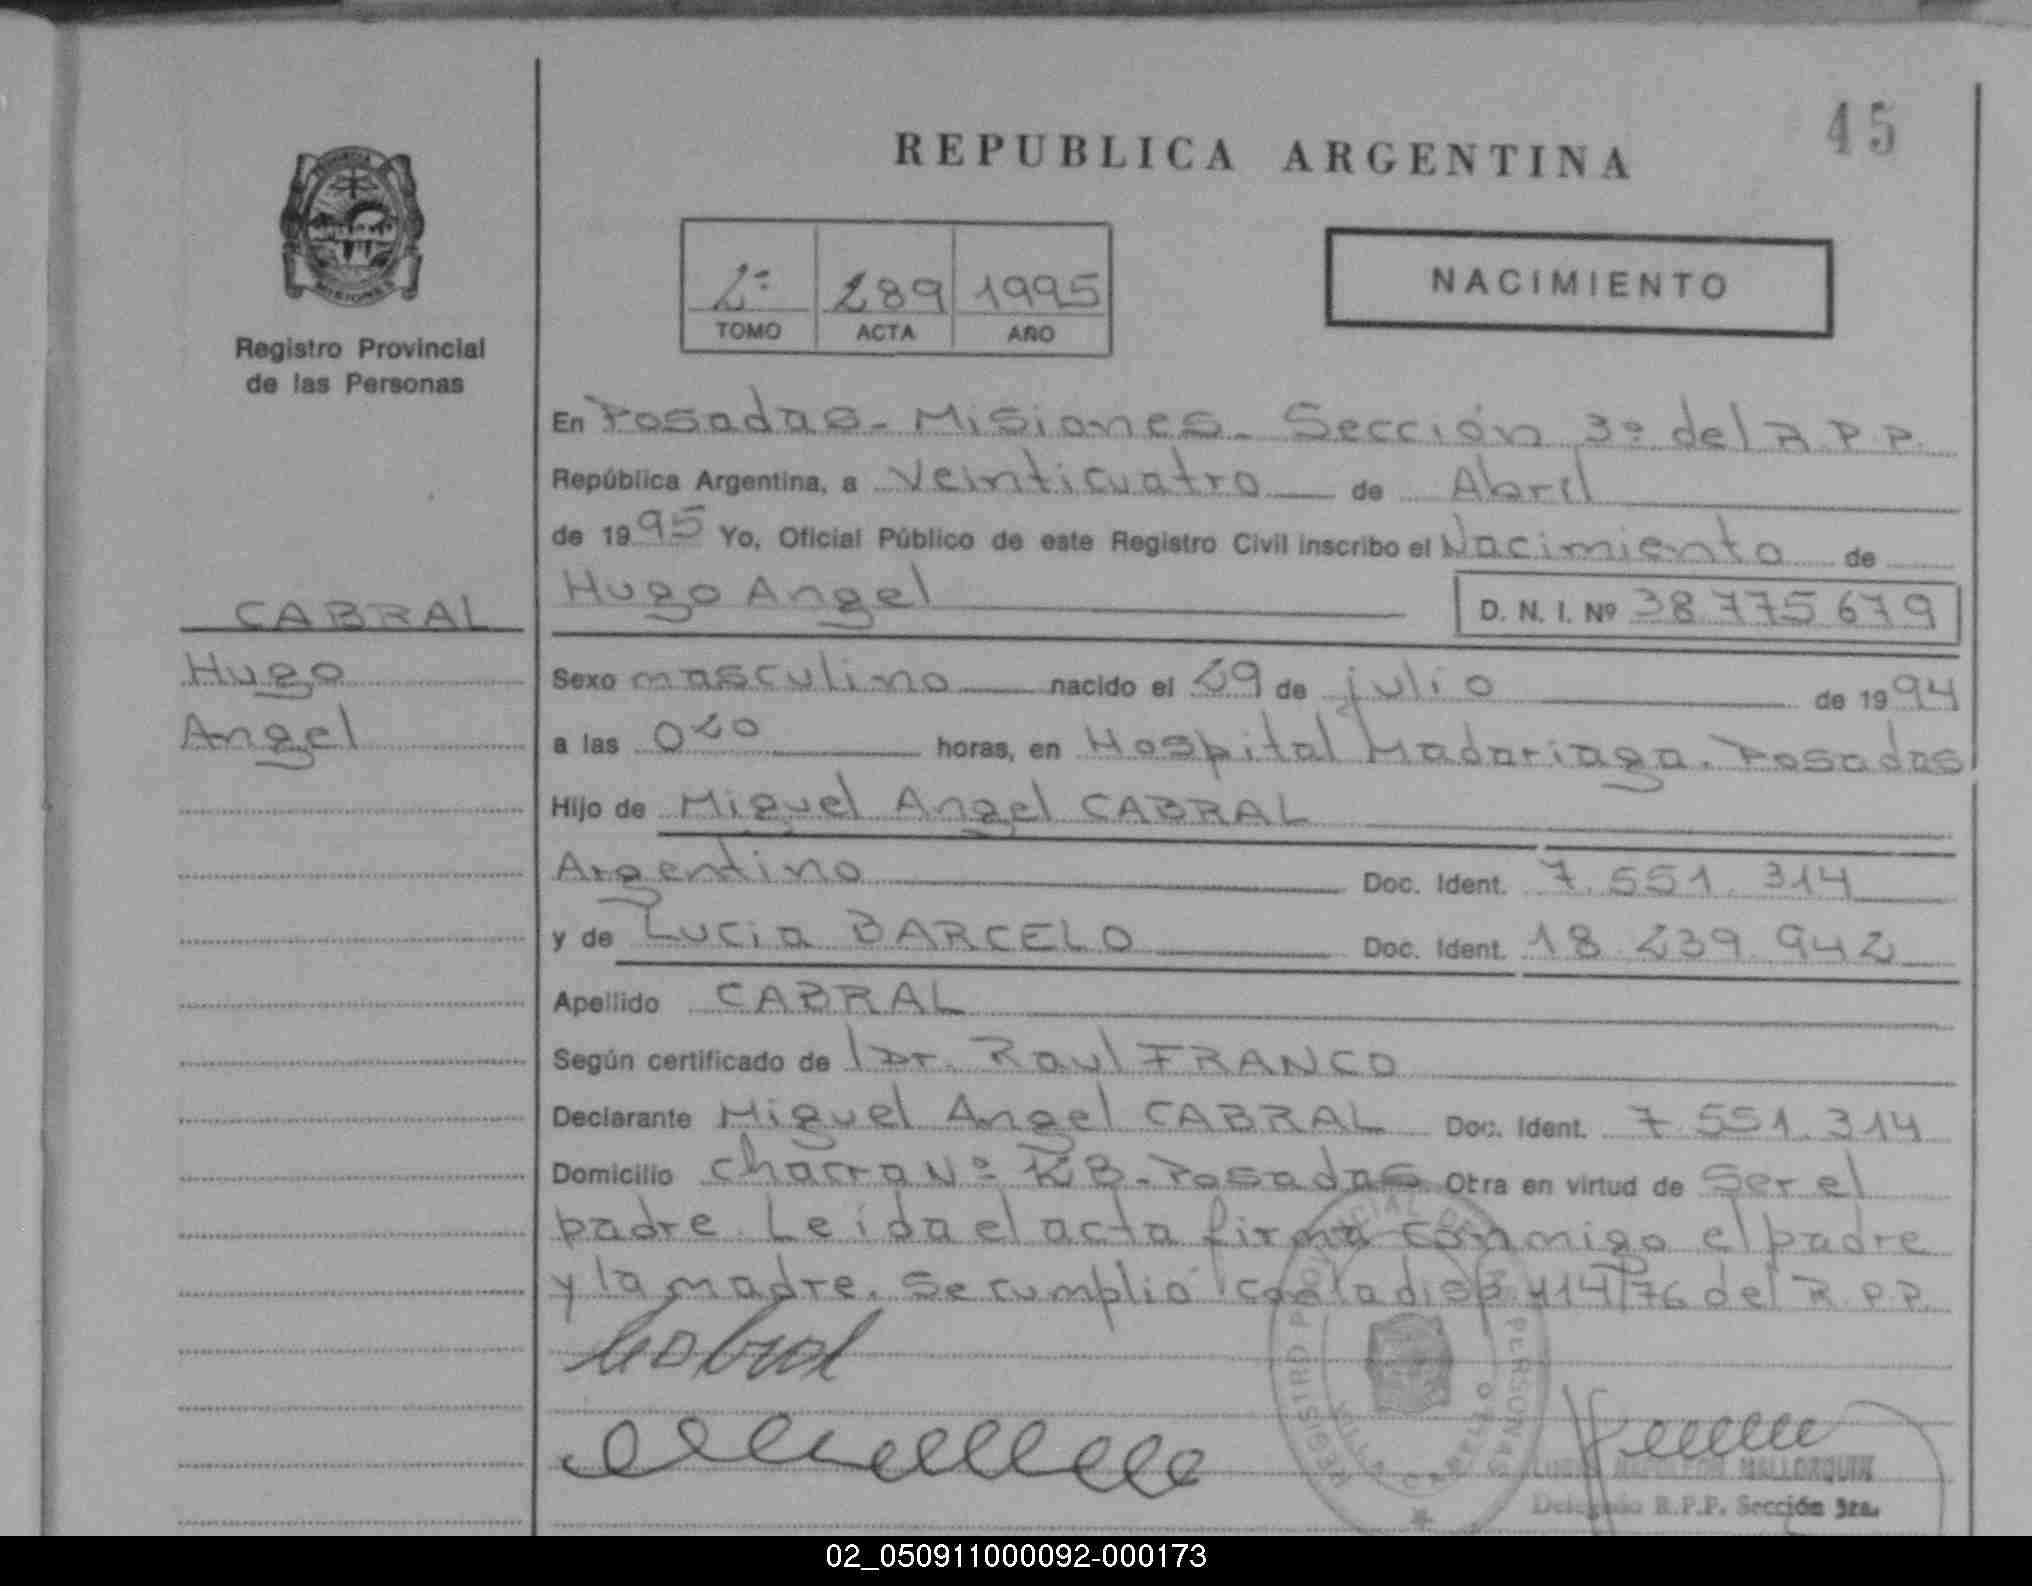 45
REPUBLICA ARGENTINA
MISIONES
Registro Provincial
de las Personas
2º 289 1995
TOMO ACTA AÑO
NACIMIENTO
En Posadas - Misiones - Sección 3º del R.P.P.
República Argentina, a veinticuatro de Abril
de 1995 Yo, Oficial Público de este Registro Civil inscribo el Nacimiento de
Hugo Angel D. N. I. Nº 38.775.679
CABRAL
Hugo
Angel
Sexo masculino nacido el 29 de julio de 1994
a las 0 20 horas, en Hospital Madariaga. Posadas
Hijo de Miguel Angel CABRAL
Argentino Doc. Ident. 7.551.314
y de Lucia BARCELO Doc. Ident. 18.239.942
Apellido CABRAL
Según certificado de l Dr. Raul FRANCO
Declarante Miguel Angel CABRAL Doc. Ident. 7.551.314
Domicilio chacra Nº - Posadas Otra en virtud de ser el
padre. Leida el acta firma conmigo el padre
y la madre. Se cumplió con la disp. 414/76 del R.P.P.
Cabral
REGISTRO PROVINCIAL DE LAS PERSONAS
VILLA CABELLO
MALLORQUIN
Delegado R.P.P. Sección 3ra.
02_050911000092-000173